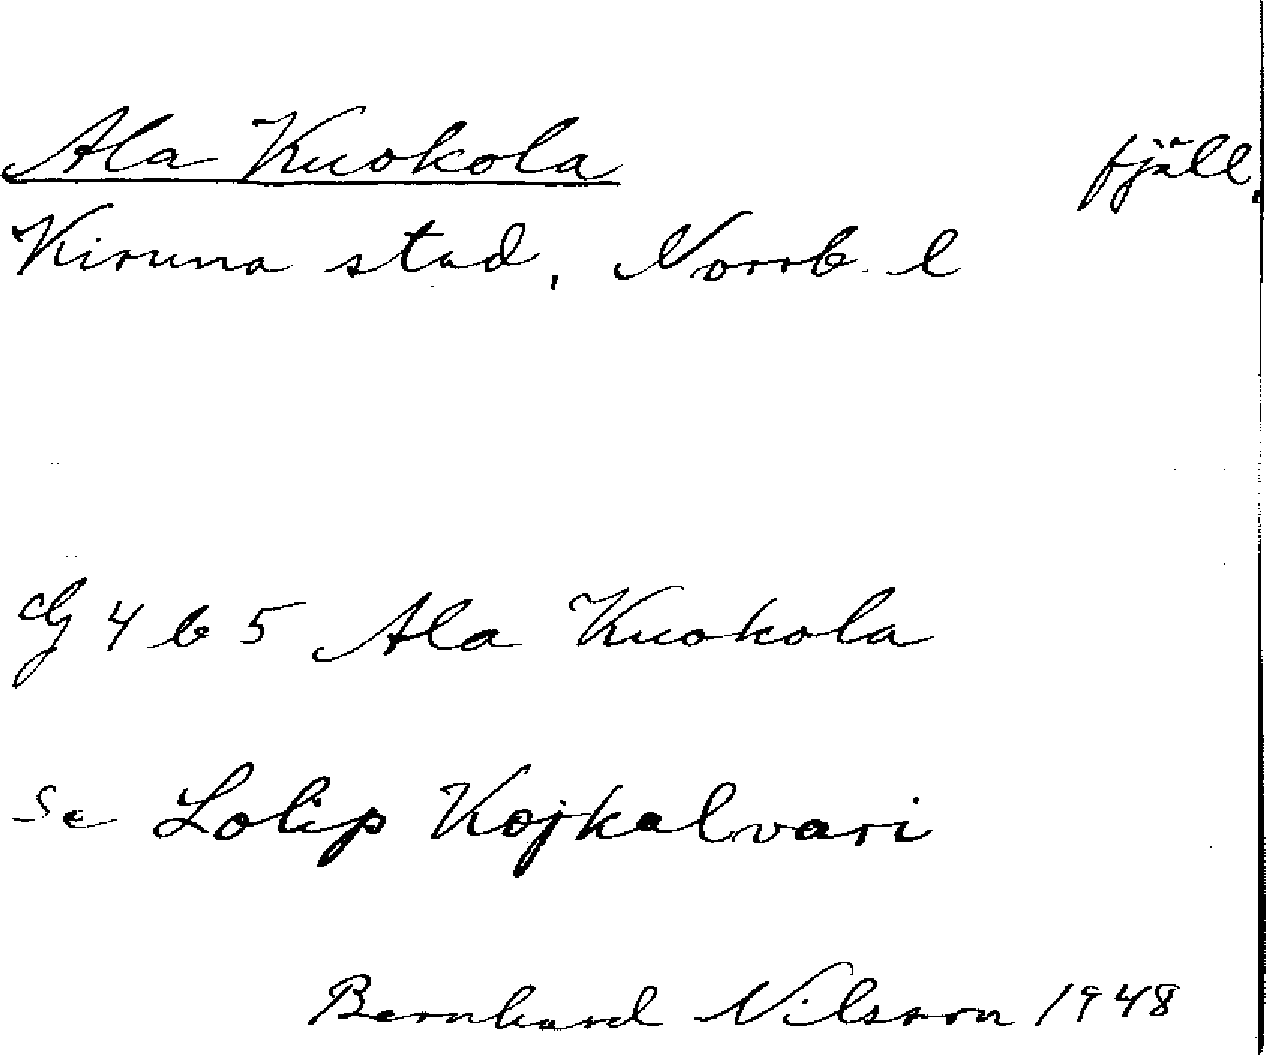 Ala Kuokola fjäll.
Kiruna stad, Norrb. l
dG 4 b 5 Ala Kuokola
se Lolip Kojkalvari
Bernhard Nilsson 1948